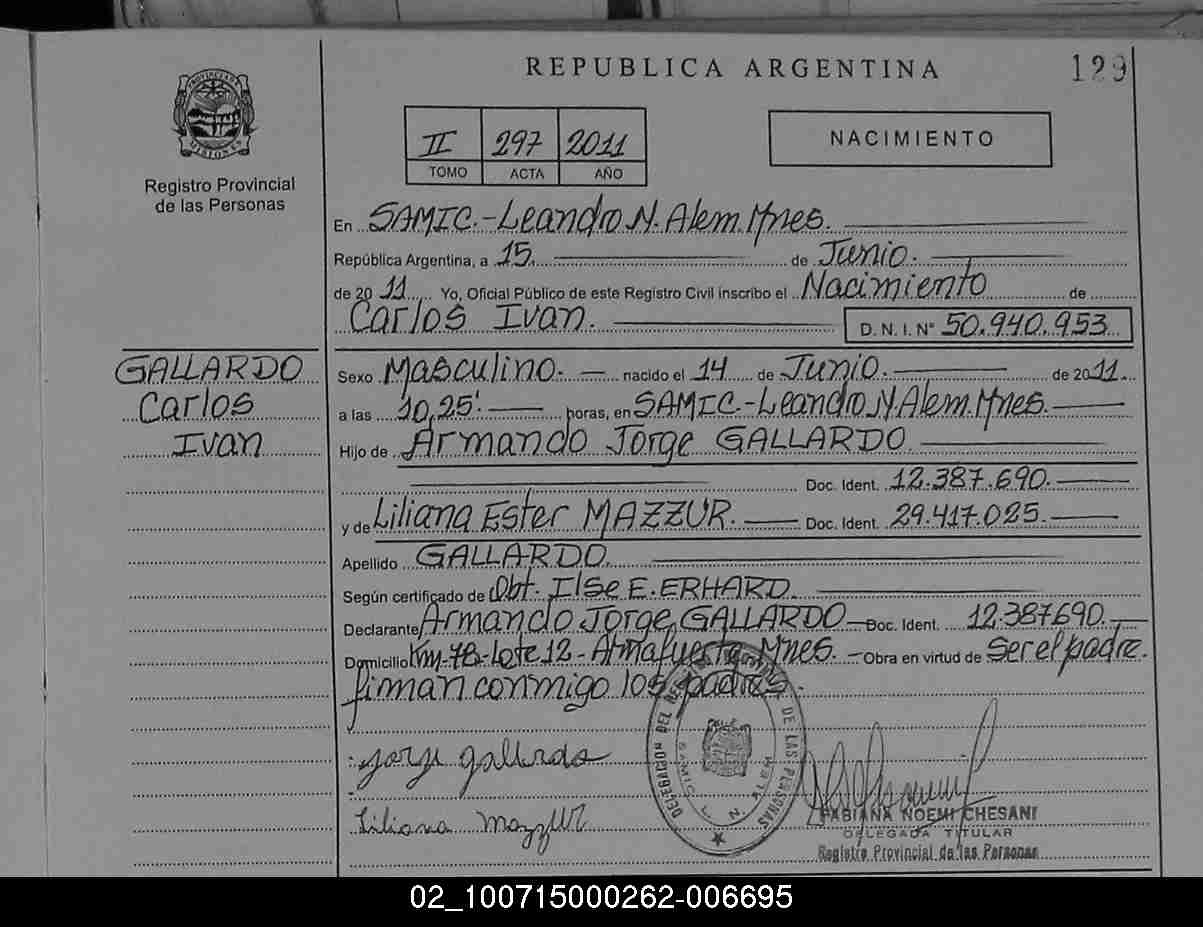 REPUBLICA ARGENTINA
129
PROVINCIA DE
MISIONES
Registro Provincial
de las Personas
II 297 2011
TOMO ACTA AÑO
NACIMIENTO
En SAMIC.-Leandro N. Alem. Mnes.
República Argentina, a 15. de Junio.
de 2011 Yo, Oficial Público de este Registro Civil inscribo el Nacimiento de
Carlos Ivan. D.N.I. N° 50.940.953
GALLARDO
Carlos
Ivan
Sexo Masculino. nacido el 14 de Junio. de 2011.
a las 10,25'. horas, en SAMIC.-Leandro N. Alem. Mnes.
Hijo de Armando Jorge GALLARDO
Doc. Ident. 12.387.690.
y de Liliana Ester MAZZUR. Doc. Ident. 29.417.025.
Apellido GALLARDO.
Según certificado de Obt. Ilse E. ERHARD.
Declarante Armando Jorge GALLARDO Doc. Ident. 12.387690.
Domicilio Km-78-Lote 12-Almafuerte Mnes. - Obra en virtud de Ser el padre.
firman conmigo los padres.
Jorge Gallardo
Liliana Mazzur
DELEGACION DEL REGISTRO DE LAS PERSONAS
FABIANA NOEMI CHESANI
DELEGADA TITULAR
Registro Provincial de las Personas
02_100715000262-006695